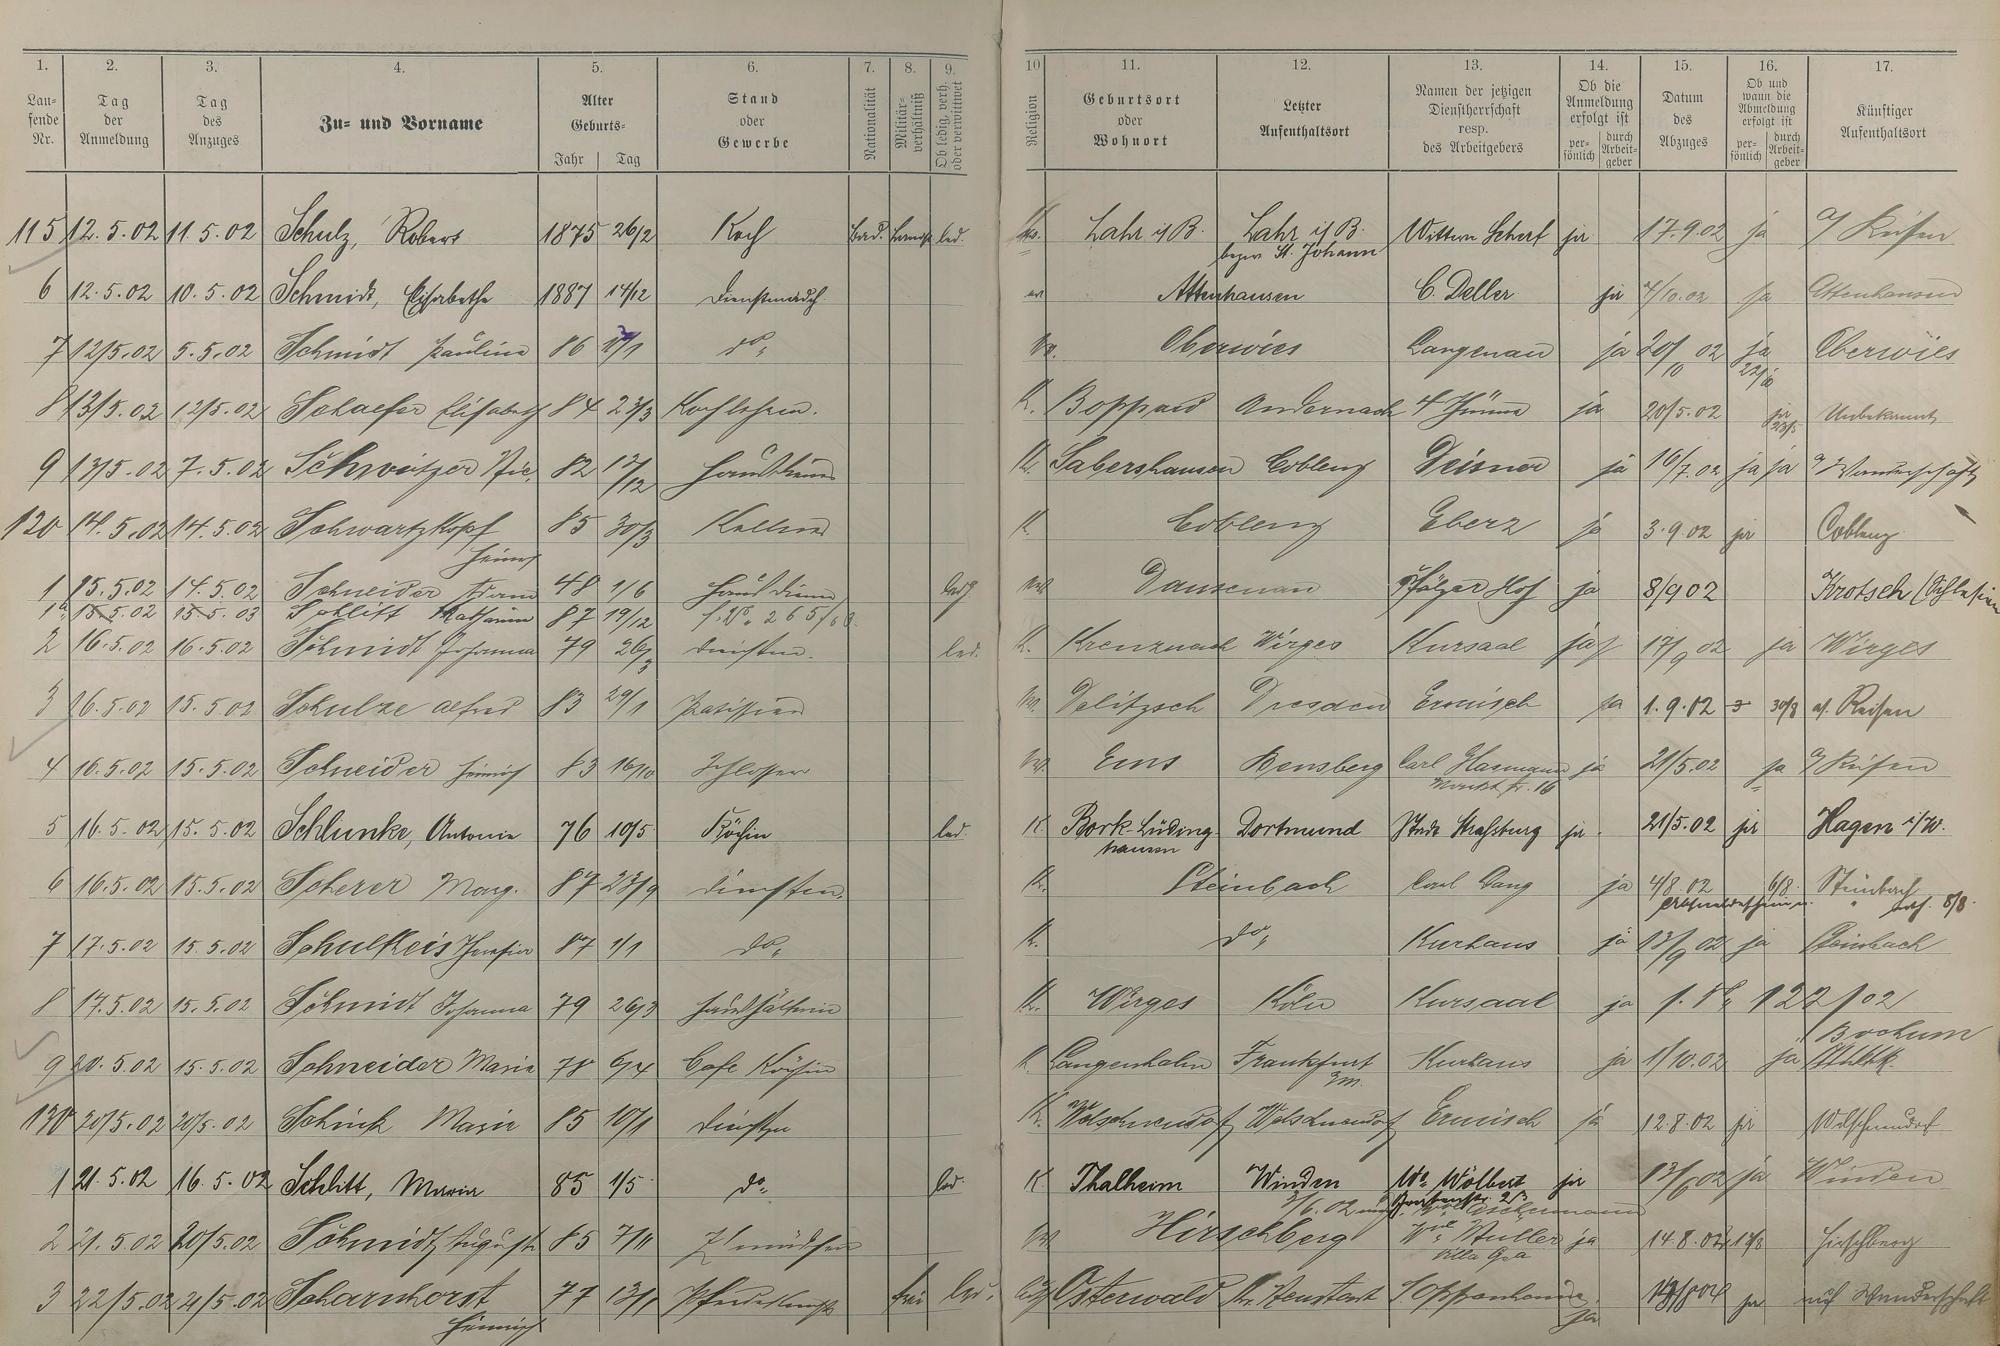 1. 2. 3. 4. 5. 6. 7. 8. 9. 10 11. 12. 13. 14. 15. 16. 17.
Laufende Nr. Tag der Anmeldung Tag des Anzuges Zu- und Vorname Alter Geburts- Jahr Tag Stand oder Gewerbe Nationalität Militärverhältniß Ob ledig, verh. oder verwittwet Religion Geburtsort oder Wohnort Letzter Aufenthaltsort Namen der jetzigen Dienstherrschaft resp. des Arbeitgebers Ob die Anmeldung erfolgt ist persönlich durch Arbeitgeber Datum des Abzuges Ob und wann die Abmeldung erfolgt ist persönlich durch Arbeitgeber Künftiger Aufenthaltsort
115 12.5.02 11.5.02 Schulz, Robert 1875 26/2 Koch bad. led. Lahr i/B. Lahr i/B. bezw. St. Johann Wittwe Scherf ja 17.9.02 ja a/ Reisen
6 12.5.02 10.5.02 Schmidt, Elisabethe 1887 14/12 Dienstmädch. ev. Attenhausen C. Deller ja 4/10.02 ja Attenhausen
7 12/5.02 5.5.02 Schmidt Pauline 86 do. Ev. Oberwies Langenau ja 20/10 02 ja 22/10 Oberwies
8 13/5.02 12/5.02 Schaefer Elisabeth 84 23/3 Kochlehrn. K. Boppard Andernach ja 20/5.02 ja 23/5 Unbekannt
9 13/5.02 7.5.02 Schweitzer Nic. 82 13/12 Hausdiener K. Sabershausen Coblenz Deisner ja 16/7.02 ja ja a/ Wanderschaft
120 14.5.02 14.5.02 Schwartzkopf Heinr. 85 30/3 Kellner K Coblenz Eberz ja 3.9.02 ja Coblenz
1 15.5.02 14.5.02 Schneider 48 1/6 Hausdiener led. ev. Dausenau Pfälzer Hof ja 8/9 02 Krotsch (Schlesien
1a 15.5.02 15.5.03 Schlitt Katharina 87 19/12 f. No. 265/03.
2 16.5.02 16.5.02 Schmidt Johanna 79 26/3 Dienstm. led. K. Kreuznach Wirges Kursaal ja 17/9 02 ja Wirges
3 16.5.02 15.5.02 Schulze Alfred 83 29/1 Ev. Delitzsch Dresden Ermisch ja 1.9.02 30/8 a/. Reisen
4 16.5.02 15.5.02 Schneider Heinrich 83 16/10 Schlosser Ev. Ems Bensberg Carl Hasmann Marktstr. 16 ja 21/5.02 ja a/ Reisen
5 16.5.02 15.5.02 Schlunke, Antonie 76 10/5 Köchin led. K. Bork-Lüdinghausen Dortmund Stadt Straßburg ja. 21/5.02 ja Hagen i/W.
6 16.5.02 15.5.02 Scherer Marg. 87 23/9 Dienstm. K. Steinbach Carl Lang ja 4/8.02 6/8. Steinbach 8/8.
7 17.5.02 15.5.02 Schulkeis 87 1/1 do. K. do. Kurhaus ja 13/9 02 ja Steinbach
8 17.5.02 15.5.02 Schmidt Johanna 79 26/3 Haushälterin K. Wirges Köln Kursaal ja f. No. 122/02
9 20.5.02 15.5.02 Schneider Maria 78 6/4 Cafe Köchin K Langenhahn Frankfurt a/M. Kurhaus ja 1/10.02 ja Bochum
130 20/5.02 20/5.02 Schink Marie 85 10/1 Dienstm. K. Welschneudorf Welschneudorf Ermisch ja 12.8.02 ja Welschneudorf
1 21.5.02 16.5.02 Schlitt, Maria 85 1/5 do. led. K Thalheim Winden We. Wölbert ja 13/6 02 ja Winden
2 21.5.02 20/5.02 Schmidt, August 85 7/11 ev Hirschberg We. Muller Villa ja 14.8.02 Hirschberg
3 22/5.02 21/5.02 Scharnhorst Heinrich 77 13/1 Pferdeknecht frei led. Osterwald Hr. Neustadt Oppenheimer ja ja auf Wanderschaft